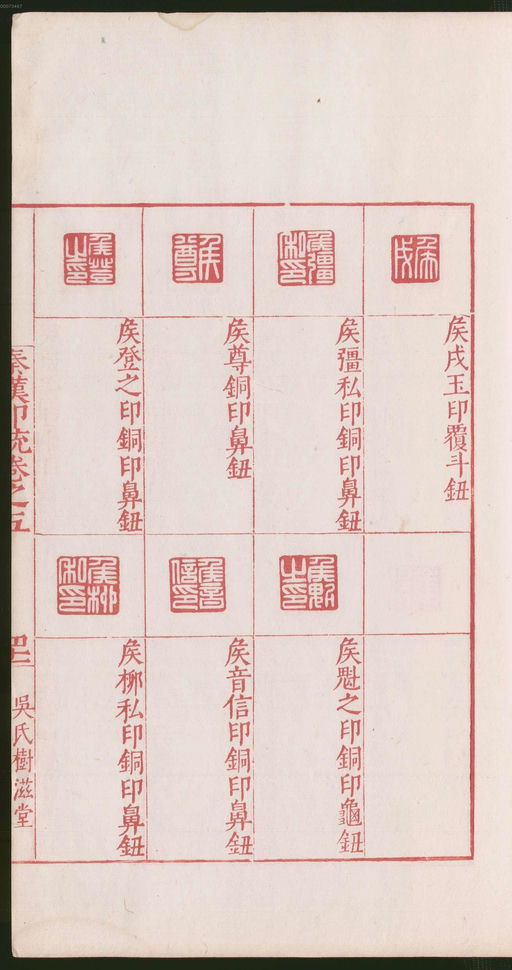 侯戌玉印覆斗鈕
侯彊私印銅印鼻鈕
侯尊銅印鼻鈕
侯登之印銅印鼻鈕
侯之印銅印龜鈕
侯音信印銅印鼻鈕
侯柳私印銅印鼻鈕
秦漢印統卷之五
吳氏樹滋堂
00073467